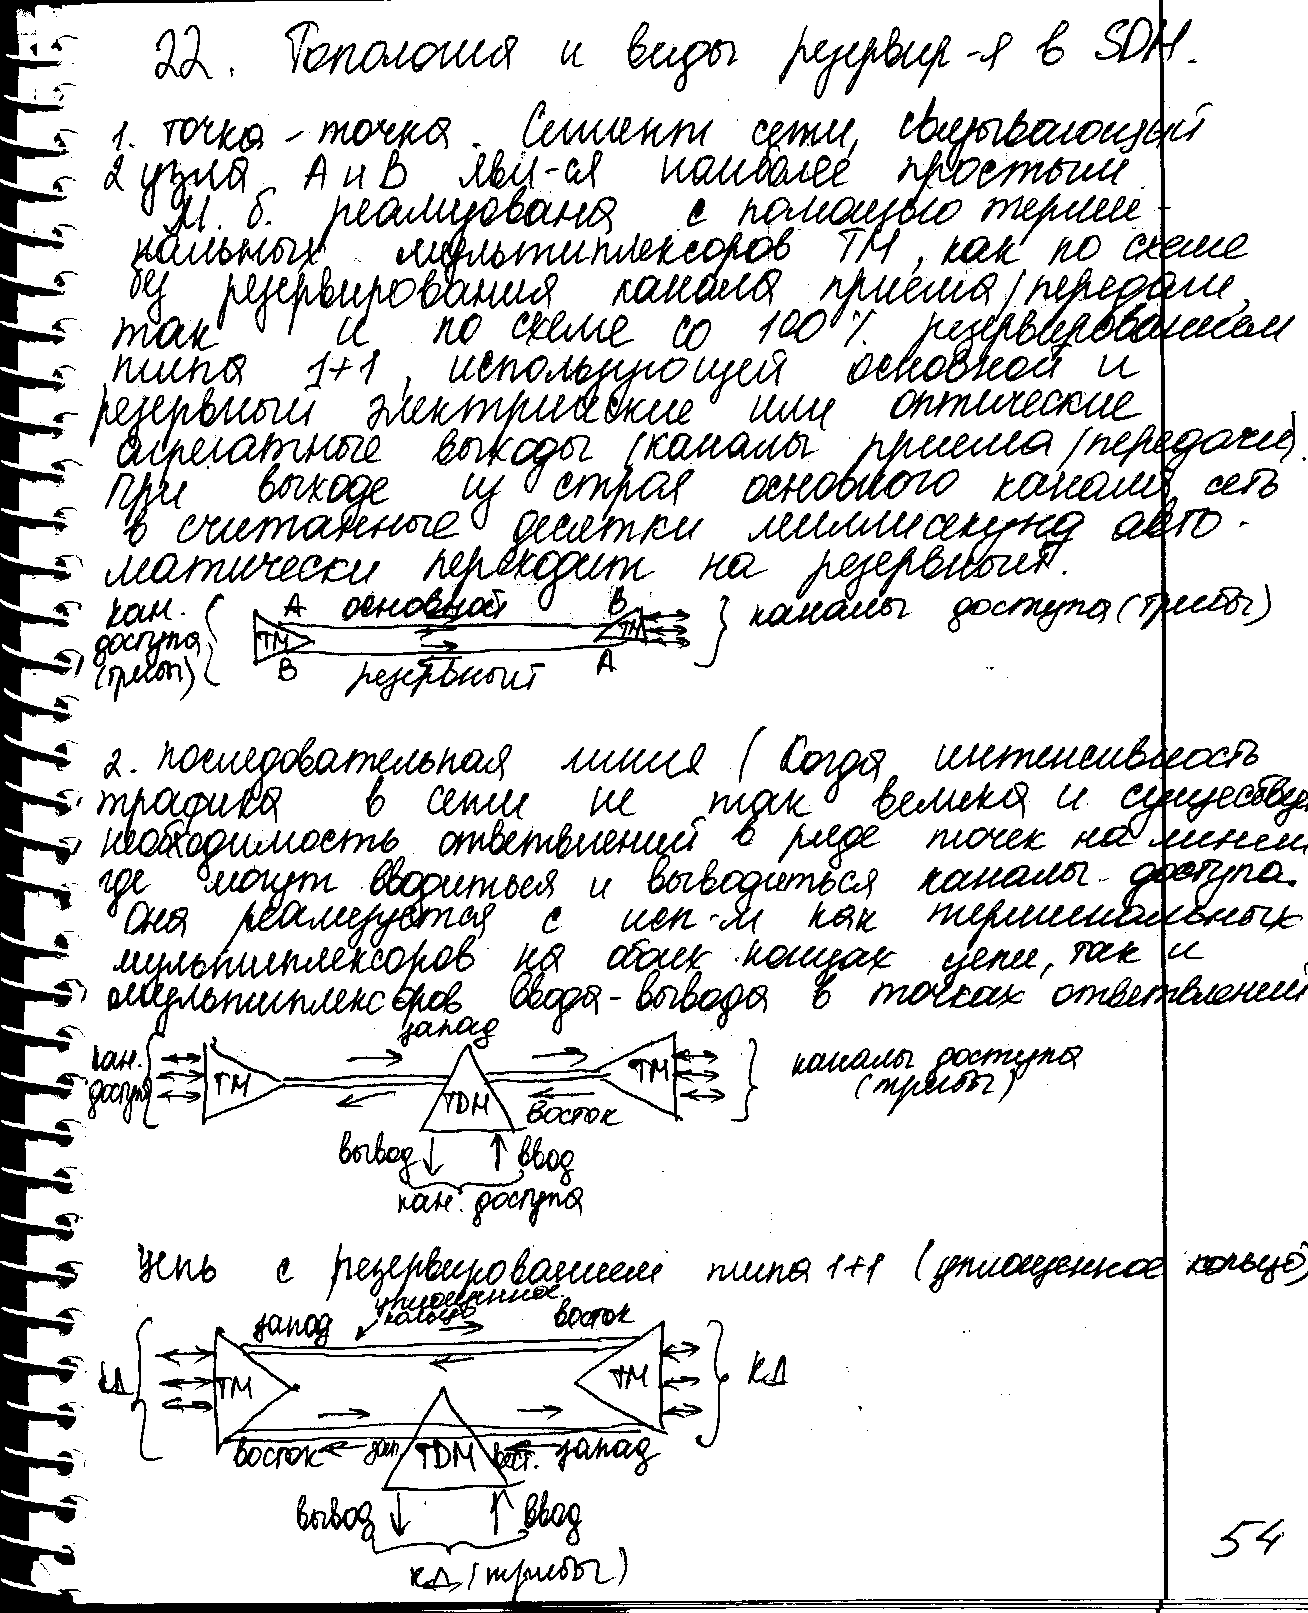 22. Топология и виды резервир-я в SDH.
1. точка-точка. Сегмент сети, связывающий
2 узла А и В явл-ся наиболее простым.
М. б. реализована с помощью терми-
нальных мультиплексоров ТМ, как по схеме
без резервирования канала приема/передачи,
так и по схеме со 100% резервированием
типа 1+1, использующей основной и
резервный электрические или оптические
агрегатные выходы (каналы приема/передачи).
При выходе из строя основного канала сеть
в считанные десятки миллисекунд авто-
матически переходит на резервный.
кан. доступа (трибы) А основной В каналы доступа (трибы)
ТМ ТМ
В резервный А
2. последовательная линия (Когда интенсивность
трафика в сети не так велика и существует
необходимость ответвлений в ряде точек на линии,
где могут вводиться и выводиться каналы доступа.
Она реализуется с исп-м как терминальных
мультиплексоров на обоих концах цепи, так и
мультиплексоров ввода-вывода в точках ответвлений
запад
кан. доступа ТМ TDM ТМ каналы доступа (трибы)
восток
вывод ввод
кан. доступа
Цепь с резервированием типа 1+1 (уплощенное кольцо)
запад уплощенное кольцо восток
КД ТМ ТМ КД
восток зап. TDM вост. запад
вывод ввод
КД (трибы)
54